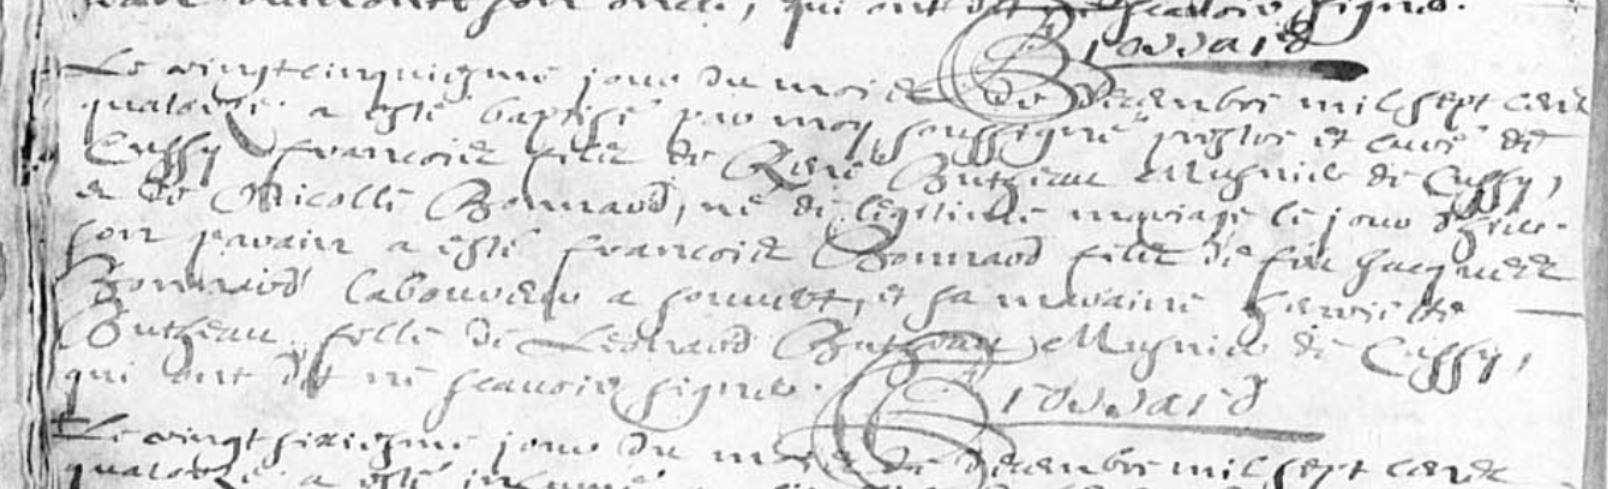 son oncle, qui ont dit ne scavoir signer.
Le vingtcinquiesme jour du mois de decembre mil sept cent
quatorze a esté baptisé par moy soussigné prestre et curé de
Cussy françois fils de René Butheau Musnier de Cussy,
et de Nicolle Bonnard, né de legitime mariage le jour d'hier.
son parain a esté françois Bonnard fils de feu Jacques
Bonnard laboureur a , et sa maraine
Butheau fille de Léonard Butheau Musnier de Cussy,
qui ont dit ne scavoir signer.
Le vingtsixiesme jour du mois de decembre mil sept cent
quatorze a esté inhumé